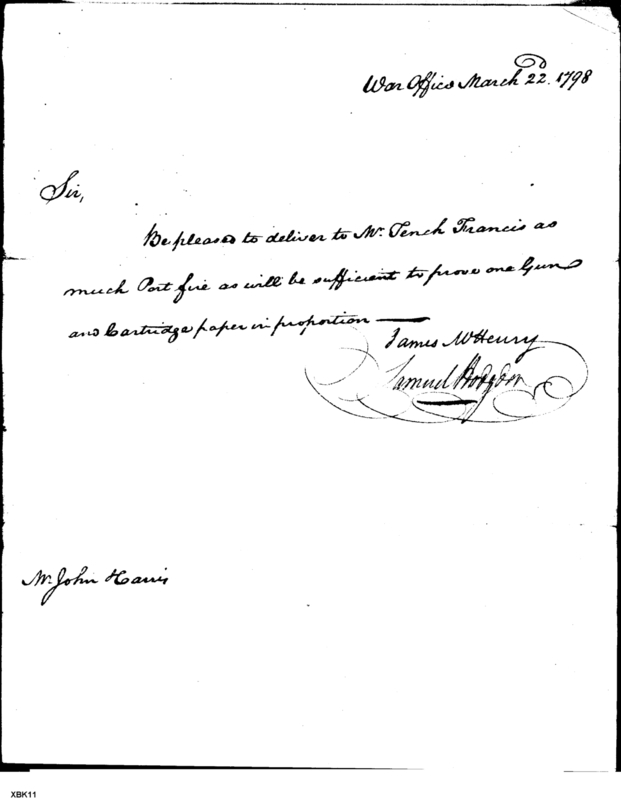 War Office March 22d. 1798
Sir,
Be pleased to deliver to Mr. Tench Francis as
much Port fire as will be sufficient to prove one Gun
and Cartridge paper in proportion —
James McHenry
Samuel Hodgdon
Mr. John Harris
XBK11